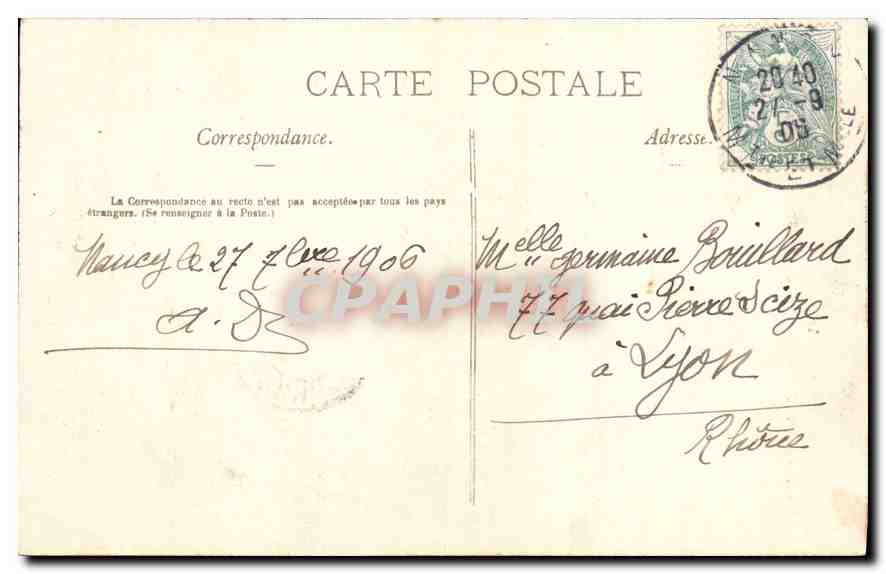 CARTE POSTALE
Correspondance.
Adresse.
La Correspondance au recto n'est pas acceptée par tous les pays
étrangers. (Se renseigner à la Poste.)
Nancy le 27 7bre 1906
A. D
Melle germaine Bouillard
77 quai Pierre Scize
à Lyon
Rhône
20 40
27 - 9
06
5
POSTES
CPAPHIL